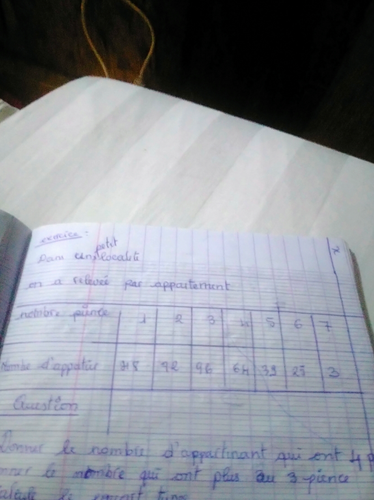 exercice :
Dans un petit localité
on a relevée par appartement
nombre pièce 1 2 3 4 5 6 7
Nombre d'appatier 48 92 96 64 39 25 3
Question
Donner le nombre d'appartinant qui ont 4 p
nner le nombre qui ont plus du 3 pience